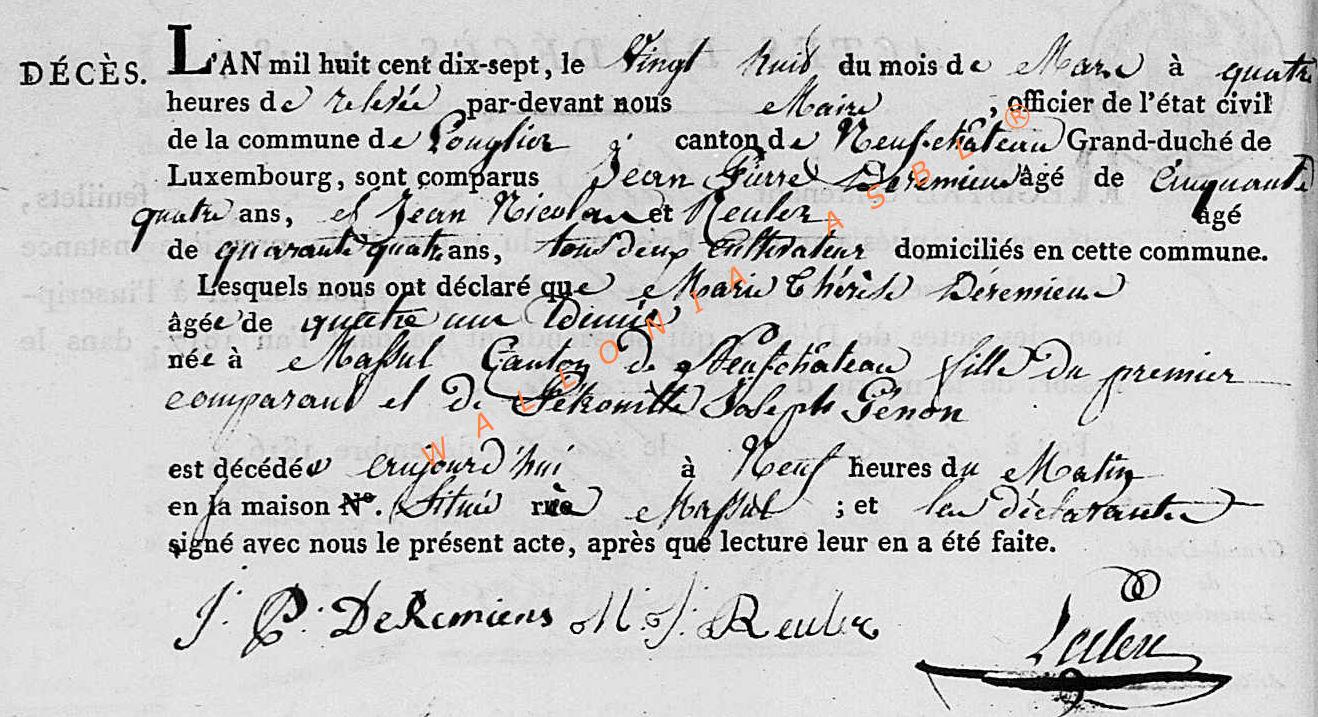 DÉCÈS. L'AN mil huit cent dix-sept, le Vingt huit du mois de Mars à quatre
heures de relevée par-devant nous Maire , officier de l'état civil
de la commune de Longlier, canton de Neufchâteau Grand-duché de
Luxembourg, sont comparus Jean Pierre Deremiens âgé de Cinquante
quatre ans, et Jean Nicolas et Reuler âgé
de quarante quatre ans, tous deux Cultivateur domiciliés en cette commune.
Lesquels nous ont déclaré que Marie Thérèse Déremiens
âgée de quatre ans Demie
née à Massul Canton de Neufchâteau fille du premier
comparant et de Joseph Génon
est décédée aujourd'hui à Neuf heures du Matin
en sa maison N°. Située rue à Massul ; et les déclarants
signé avec nous le présent acte, après que lecture leur en a été faite.
J. P. DeRemiens N. J. Reuler
WALLONIA ASBL ®